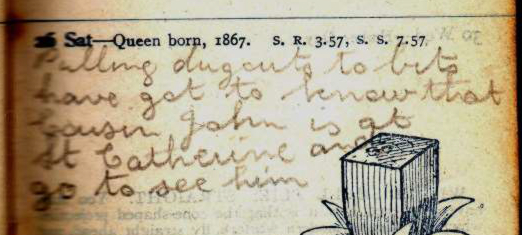 26 Sat—Queen born, 1867. S. R. 3.57, S. S. 7.57
Pulling dugouts to bits
have got to know that
Cousin John is at
St Catherine and
go to see him